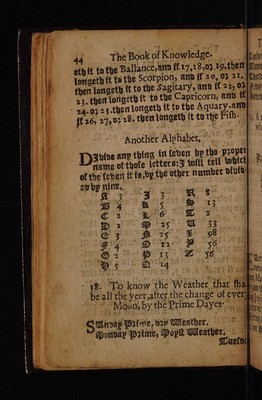 44
The Book of Knowledge.
eth it to the Ballance, and if 17, 18, oz 19. then
longeth it to the Scorpion, and if 20, oz 21.
then longeth it to the Sagitary, and if 22, oz
23. then longeth it to the Capricorn, and if
24. oz 25. then longeth it to the Aquary. and
if 26, 27, oz 28. then longeth it to the Fish.
Another Alphabet.
Divide any thing in seven by the proper
name of those letters: I will tell which
of the seven it is, by the other number divid-
ed by nine.
A 3 I 3 R 8
B 4 K 5 S 13
C 2 L 6 T 2
D 2 M 25 U 33
E 3 N 25 98
F 4 O 12 Y 56
G 2 P 13 Z 56
H 5 14
18. To know the Weather that sha
be all the yeer, after the change of ever
Moon, by the Prime Dayes
Sunday Prime, dry Weather.
Monday Prime, Moyst Weather.
Tuesd